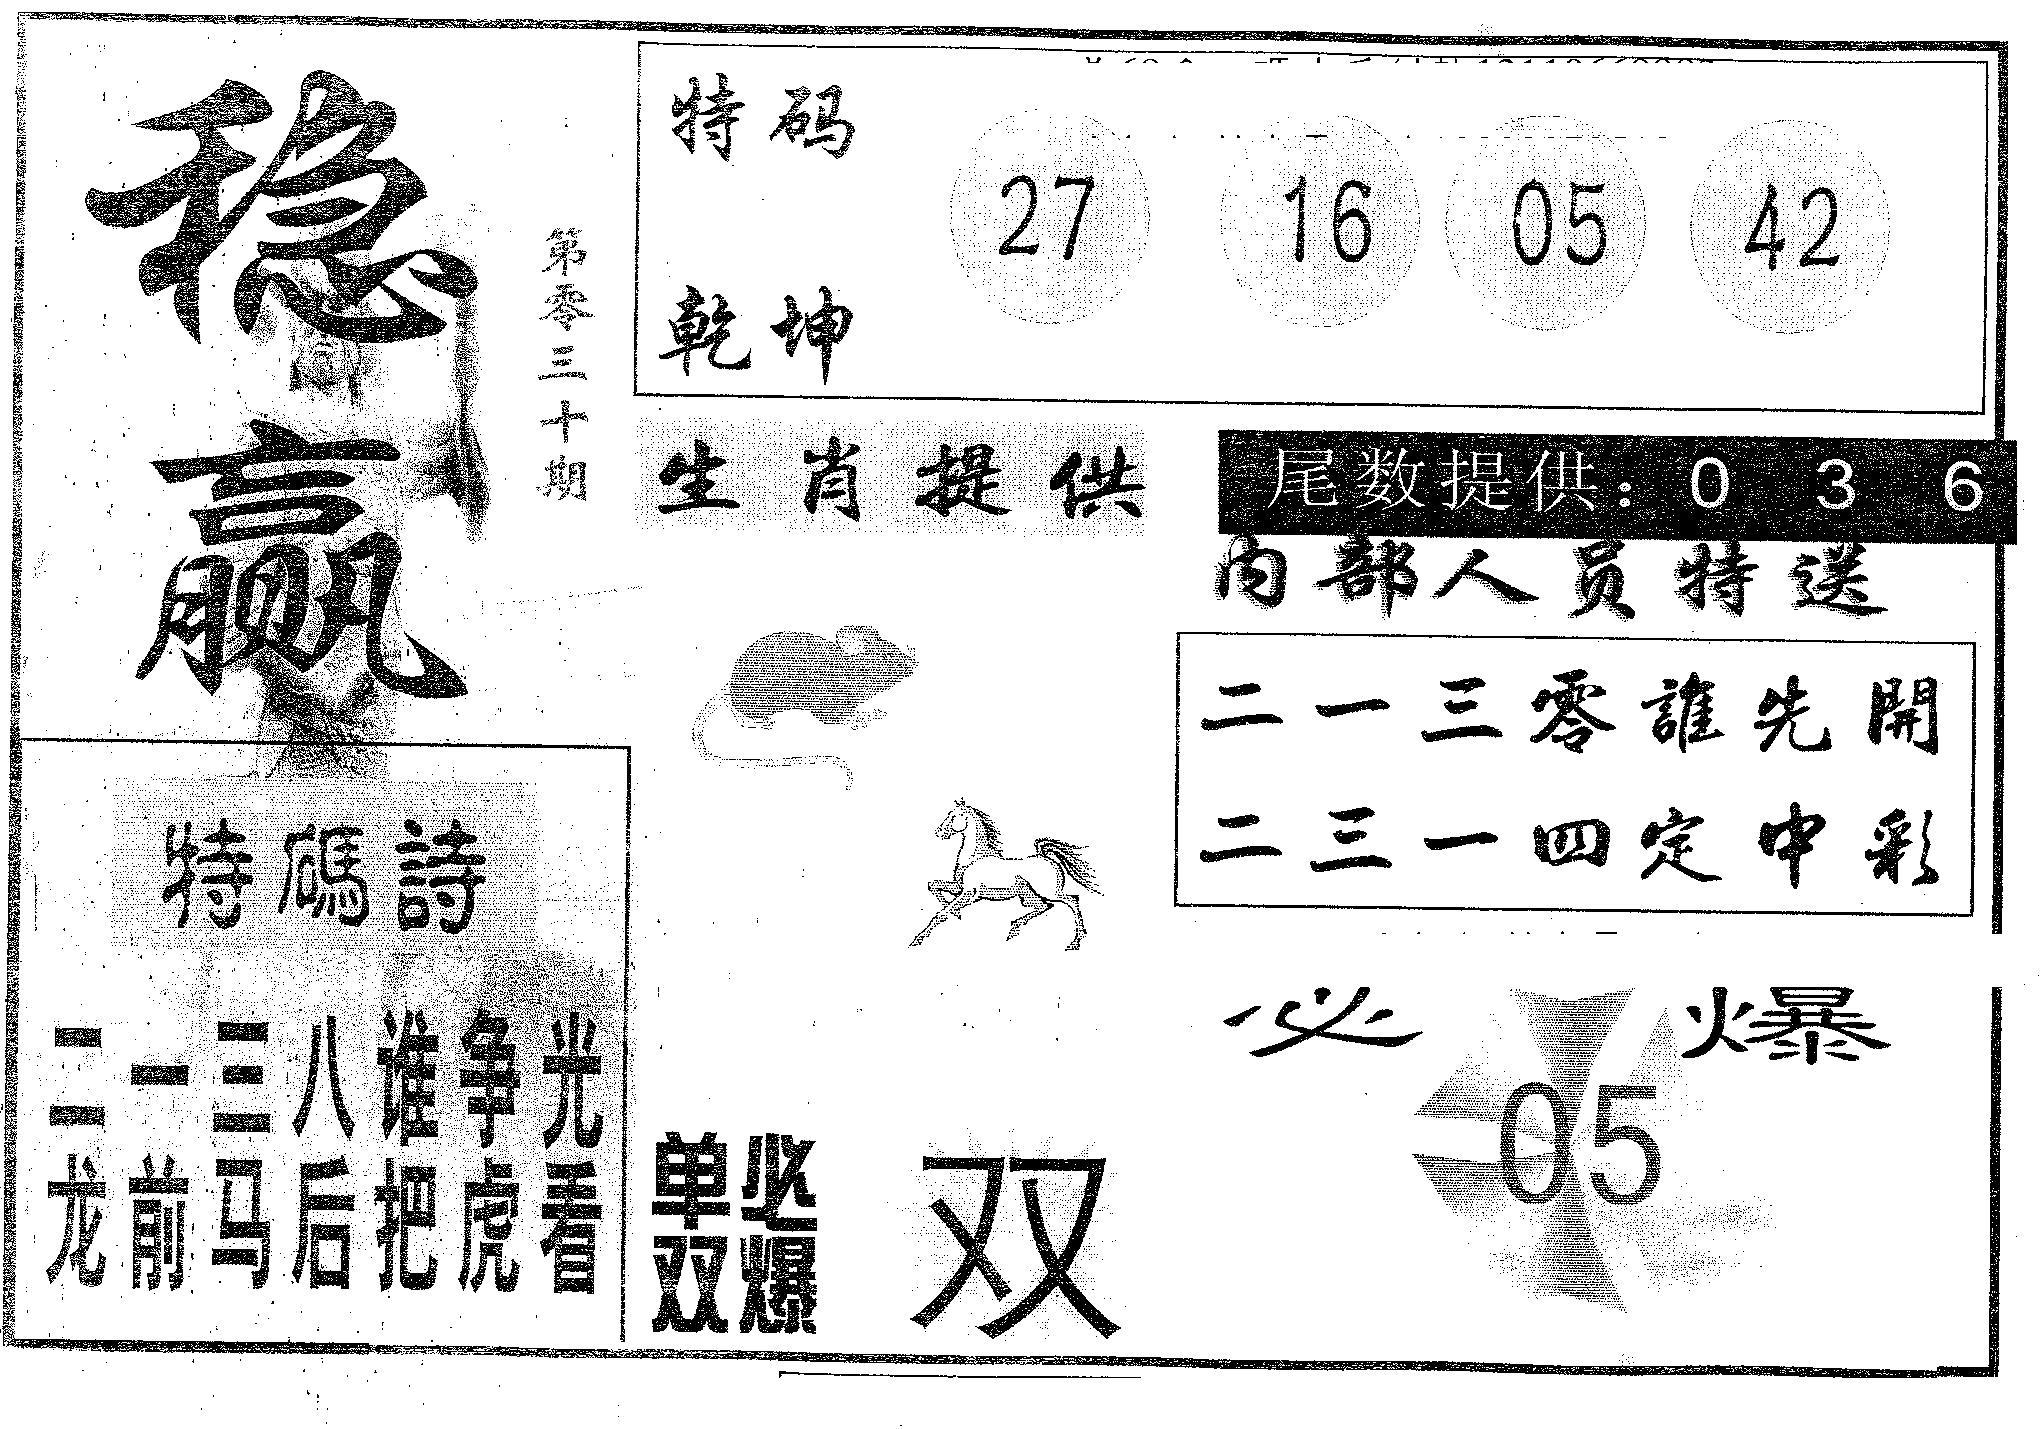 稳赢
第零三十期
特码
乾坤
27 16 05 42
生肖提供
尾数提供：0 3 6
内部人员特送
二一三零誰先開
二三一四定中彩
特碼詩
二一三八谁争光
龙前马后把虎看
单双
必爆
双
必爆
05